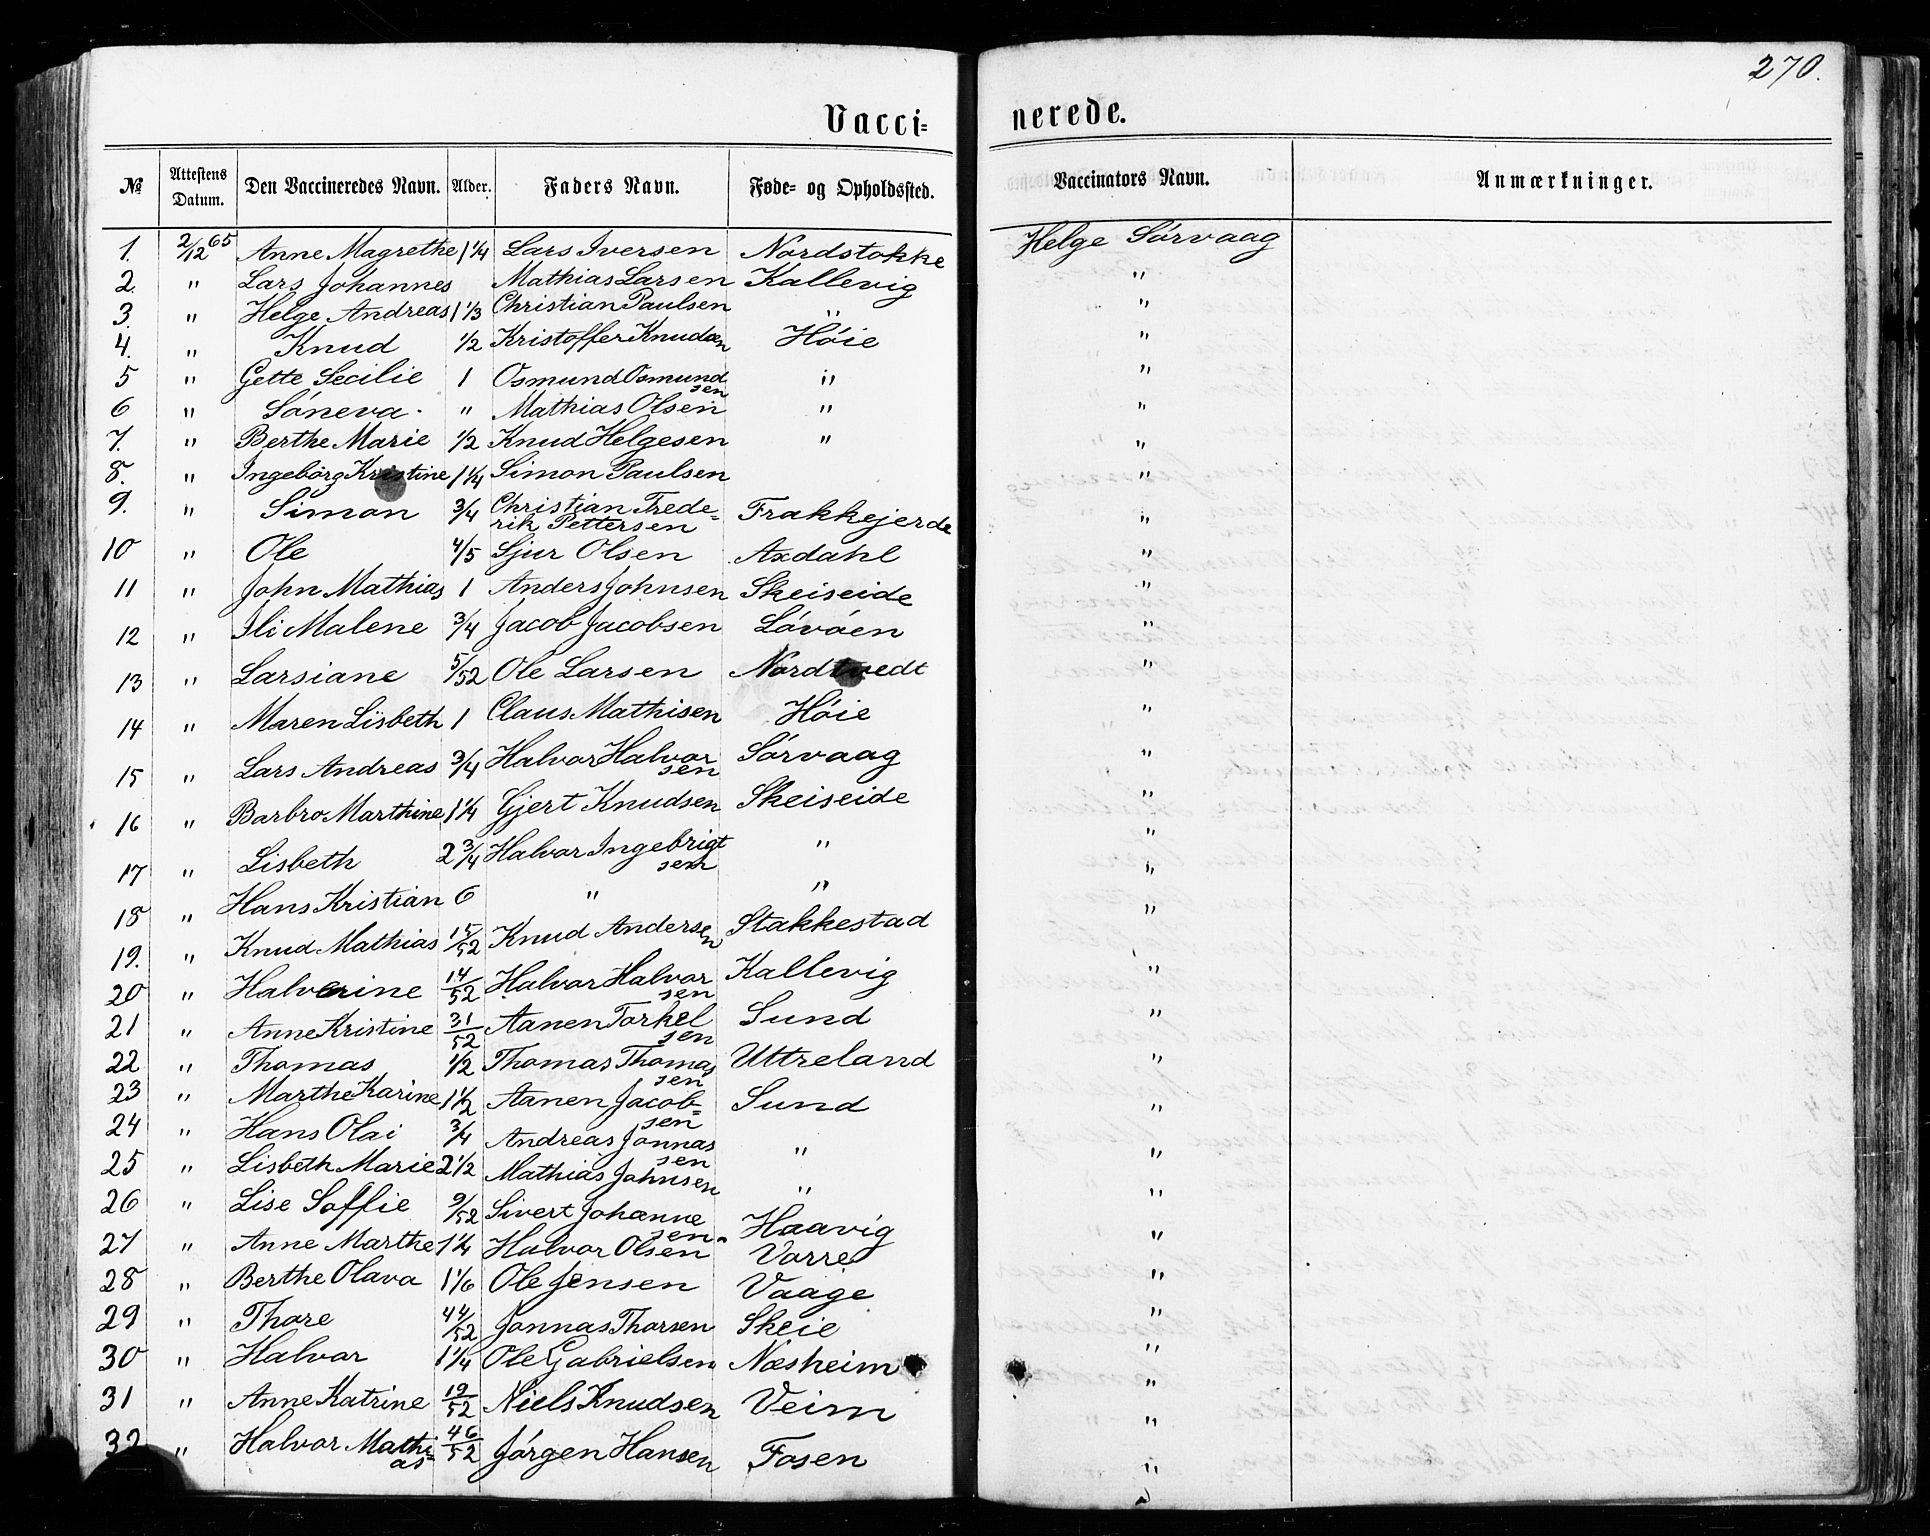 270.
Vacci= nerede.
№ Attestens Datum. Den Vaccineredes Navn. Alder. Faders Navn. Føde= og Opholdssted. Vaccinators Navn. Anmærkninger.
1. 2/12 65 Anne Magrethe 1 1/4 Lars Iversen Nordstokke Helge Sörvaag
2. " Lars Johannes Mathias Larsen Kallevig "
3. " Helge Andreas 1 1/3 Christian Paulsen " "
4. " Knud 1/2 Kristoffer Knudsen Höie "
5 " Gette Secilie 1 Osmund Osmund
sen " "
6 " Söneva. " Mathias Olsen " "
7. " Berthe Marie 1/2 Knud Helgesen " "
8. " Ingebörg Kristine 1 1/4 Simon Paulsen "
9. " Simon 3/4 Christian Frede=
rik Pettersen Frakkejerde "
10 " Ole 4/5 Sjur Olsen Axdahl "
11 " John Mathias 1 Anders Johnsen Skeiseide "
12 " Ili Malene 3/4 Jacob Jacobsen Lövöen "
13 " Larsiane 5/52 Ole Larsen Nordtvedt "
14 " Maren Lisbeth 1 Claus Mathisen Höie "
15 " Lars Andreas 3/4 Halvor Halvor
sen Sörvaag "
16 " Barbro Marthine 1 1/4 Gjert Knudsen Skeiseide "
17 " Lisbeth 2 3/4 Halvor Ingebrigt
sen " "
18 " Hans Kristian 6 " " "
19. " Knud Mathias 15/52 Knud Andersen Stakkestad "
20 " Halverine 14/52 Halvor Halvor
sen Kallevig "
21 " Anne Kristine 31/52 Aanen Torkel
sen Sund "
22 " Thomas 1/2 Thomas Thomas
sen Uttreland "
23 " Marthe Karine 1 1/2 Aanen Jacob=
sen Sund "
24 " Hans Olai 3/4 Andreas Jonnas
sen " "
25 " Lisbeth Marie 2 1/2 Mathias Johnsen " "
26 " Lise Soffie 9/52 Sivert Johanne
sen Haavig "
27 " Anne Marthe 1 1/4 Halvor Olsen Vorre "
28 " Berthe Olava 1 1/6 Ole Jensen Vaage "
29 " Thore 44/52 Jonnas Thorsen Skeie "
30 " Halvor 1 1/4 Ole Gabrielsen Næsheim "
31 " Anne Katrine 19/52 Niels Knudsen Veim "
32 " Halvor Mathi=
as 46/52 Jörgen Hansen Fosen "